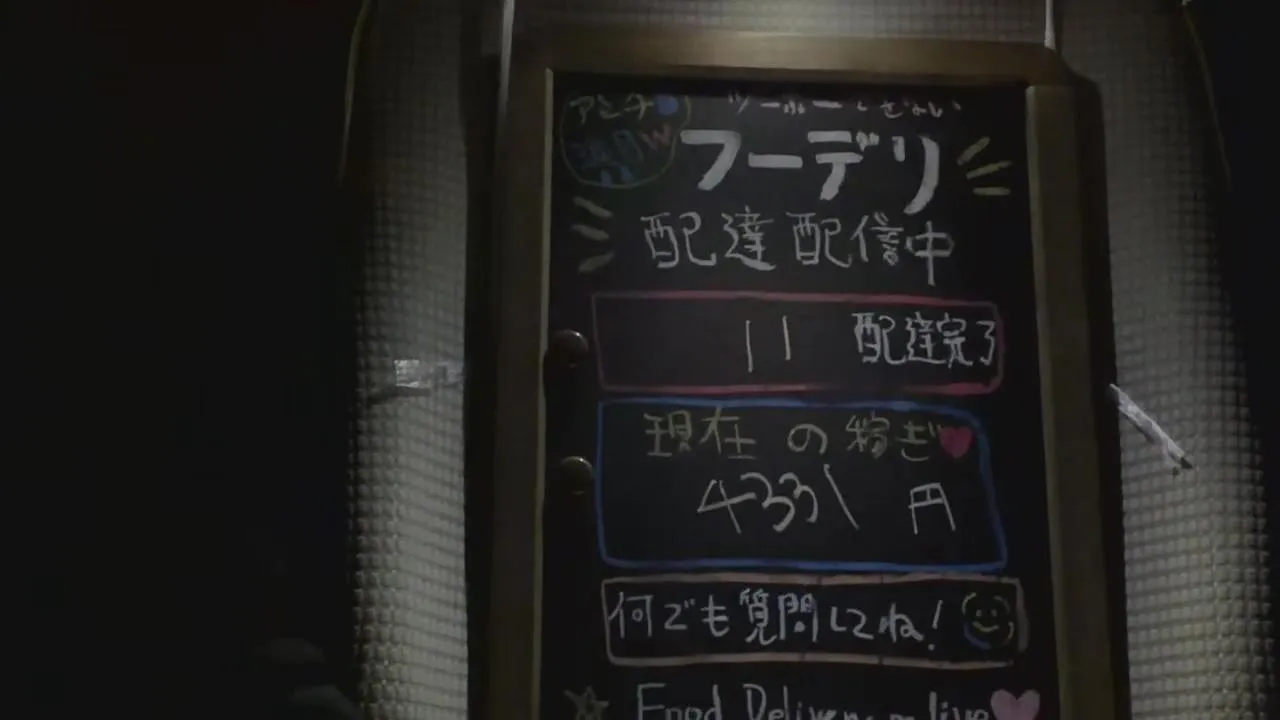 アンチ
フーデリ
配達配信中
11 配達完了
現在の稼ぎ
4331 円
何でも質問してね!
Food Delivery live